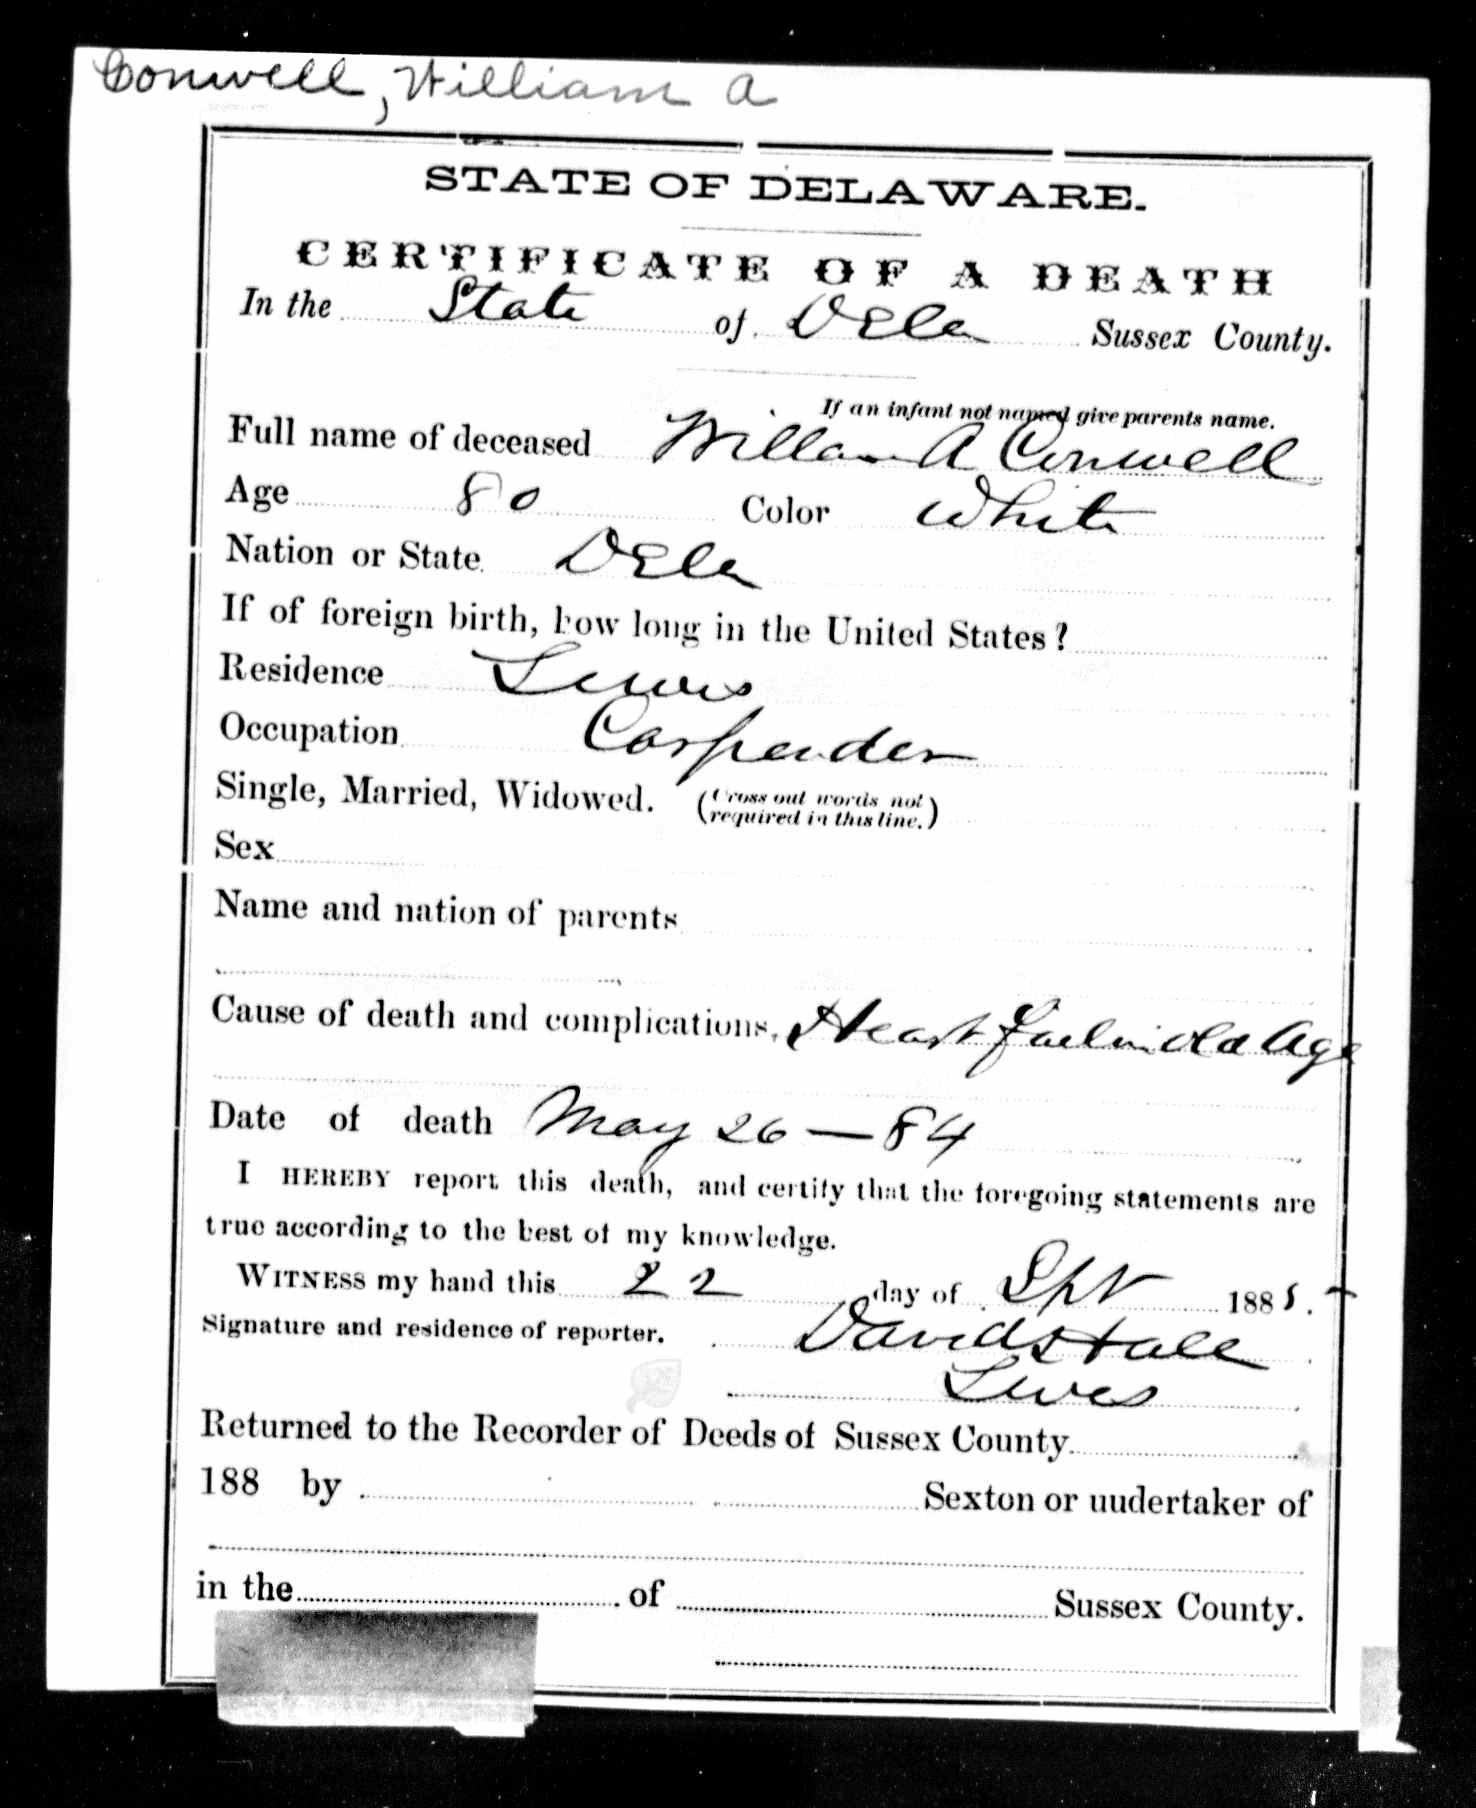 Conwell, William A
STATE OF DELAWARE.
CERTIFICATE OF A DEATH
In the State of Dela Sussex County.
If an infant not named give parents name.
Full name of deceased Willam A Conwell
Age 80 Color White
Nation or State Dela
If of foreign birth, how long in the United States?
Residence Lewes
Occupation Carpender
Single, Married, Widowed. (Cross out words not
required in this line.)
Sex
Name and nation of parents
Cause of death and complications, Heart old Age
Date of death May 26 — 84
I HEREBY report this death, and certify that the foregoing statements are
true according to the best of my knowledge.
WITNESS my hand this 22 day of Spt 1885.
Signature and residence of reporter. David Hall
Lewes
Returned to the Recorder of Deeds of Sussex County
188 by Sexton or undertaker of
in the of Sussex County.